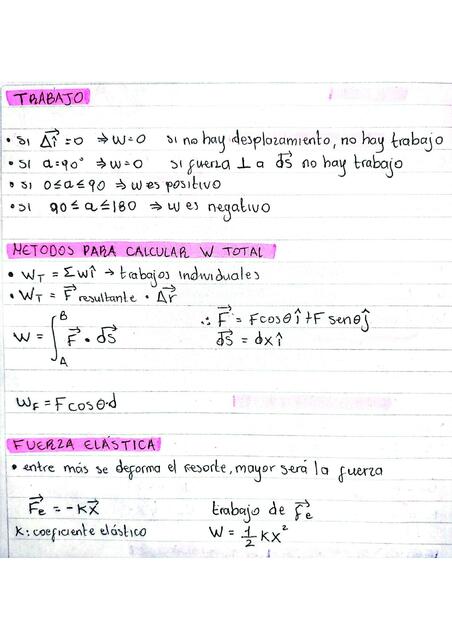 TRABAJO
• si Δî=0 ⇒ W=0 si no hay desplazamiento, no hay trabajo
• si a=90° ⇒ W=0 si fuerza ⊥ a ds no hay trabajo
• si 0≤a≤90 ⇒ W es positivo
• si 90≤a≤180 ⇒ W es negativo
METODOS PARA CALCULAR W TOTAL
• W_T = Σwî → trabajos individuales
• W_T = F⃗ resultante • Δr⃗
W = ∫_A^B F⃗ • ds⃗ ∴ F⃗ = Fcosθî + F senθĵ
ds⃗ = dxî
W_F = F cosθ·d
FUERZA ELÁSTICA
• entre más se deforma el resorte, mayor será la fuerza
F⃗e = -kx⃗ trabajo de f⃗e
K: coeficiente elástico W = 1/2 kx²